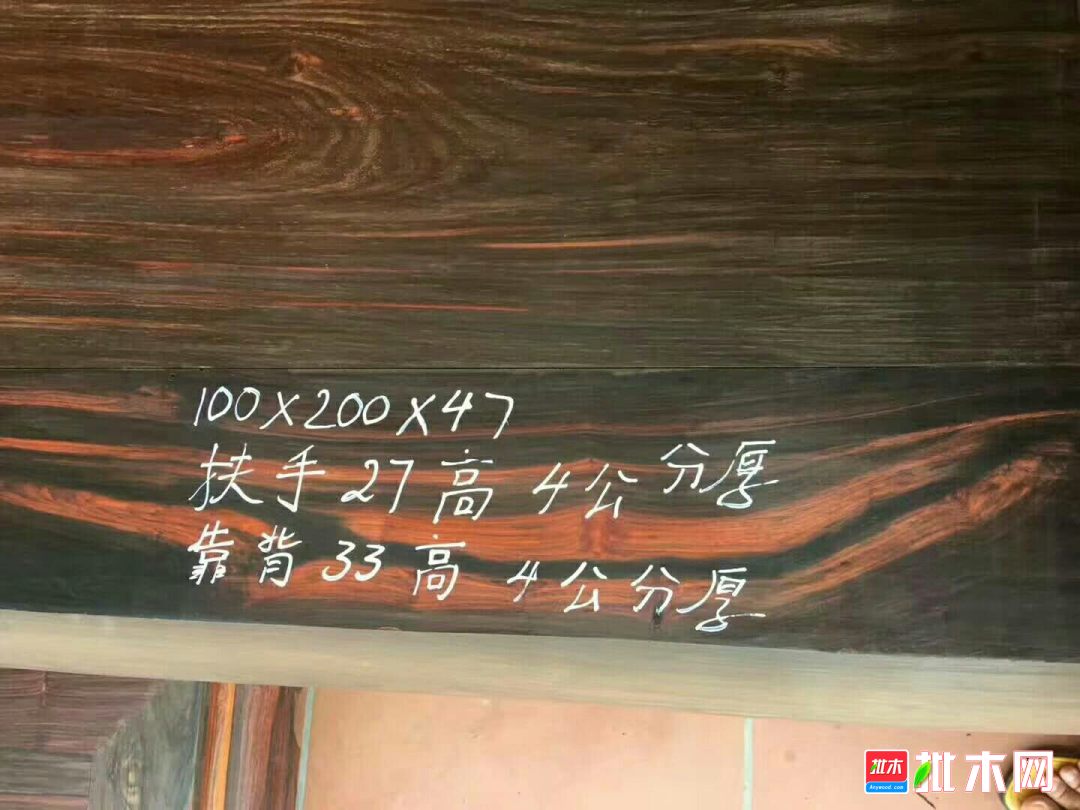 100X200X47
扶手 27高 4公分厚
靠背 33高 4公分厚
批木 批木网
Anywood.com